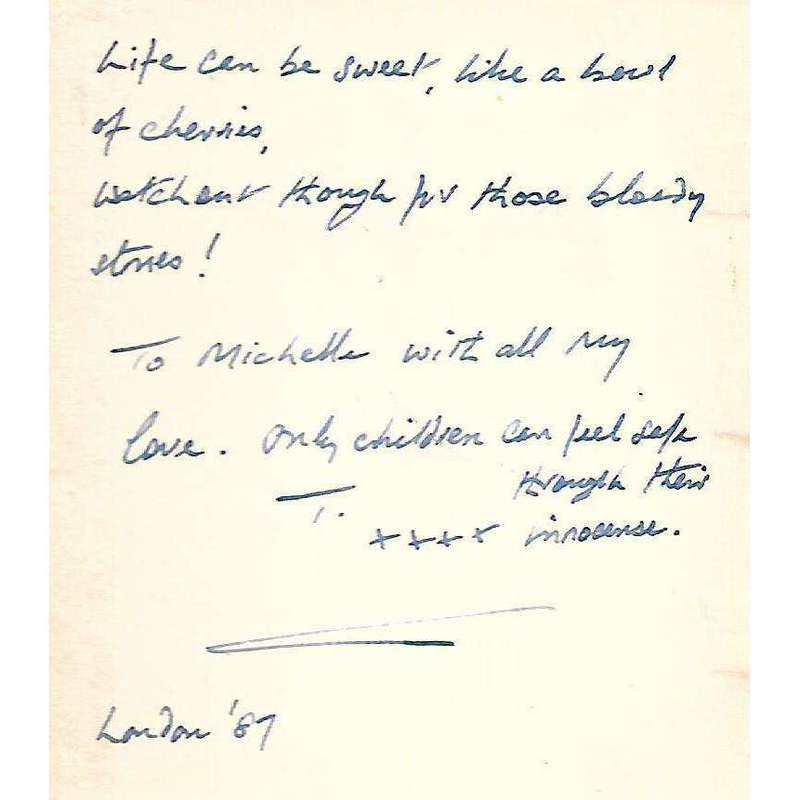 Life can be sweet, like a bowl
of cherries,
Watch out though for those bloody
stones!
To Michelle with all my
love. Only children can feel safe
through their
T.
xxxx innocense.
London '87